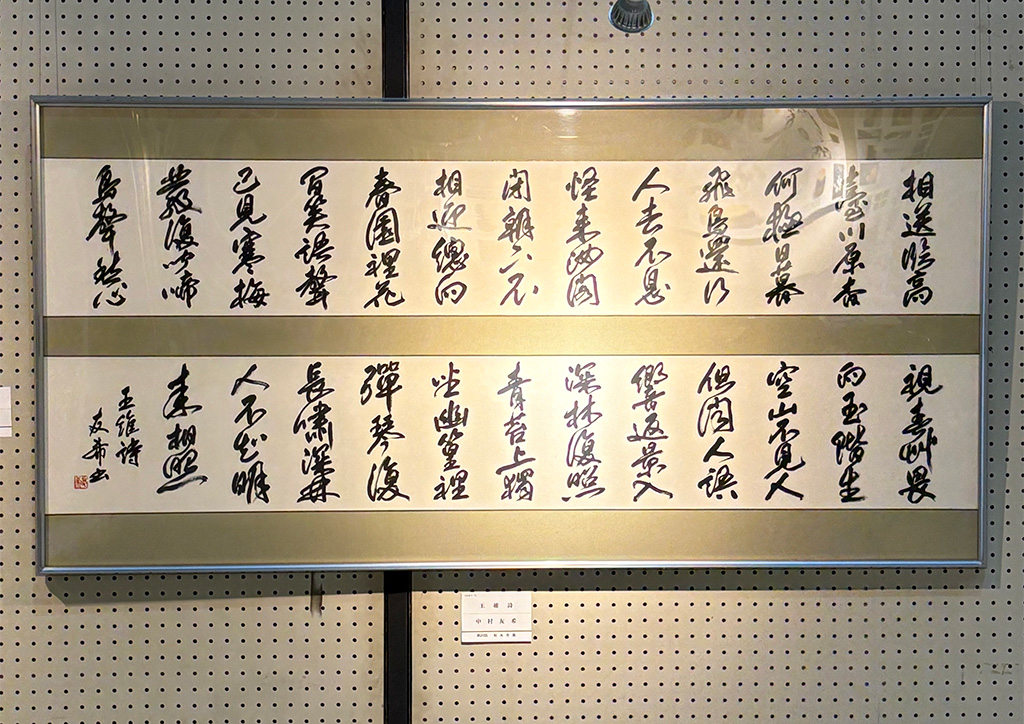 相送臨高
臺川原杳
何極日暮
飛鳥還行
人去不息
怪來妝閣
閉朝下不
相迎總向
春園裡花
間笑語聲
已見寒梅
發復聞啼
鳥聲愁心
視春艸畏
向玉階生
空山不見人
但聞人語
響返景入
深林復照
青苔上獨
坐幽篁裡
彈琴復
長嘯深林
人不知明
來相照
王維詩
友希書
王維詩
中村友希